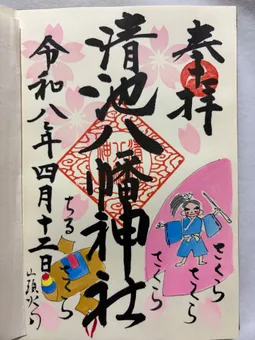 奉拝
清池八幡神社
さくら
さくら
さくら
ちる
さくら
山頭火句
令和八年四月十二日